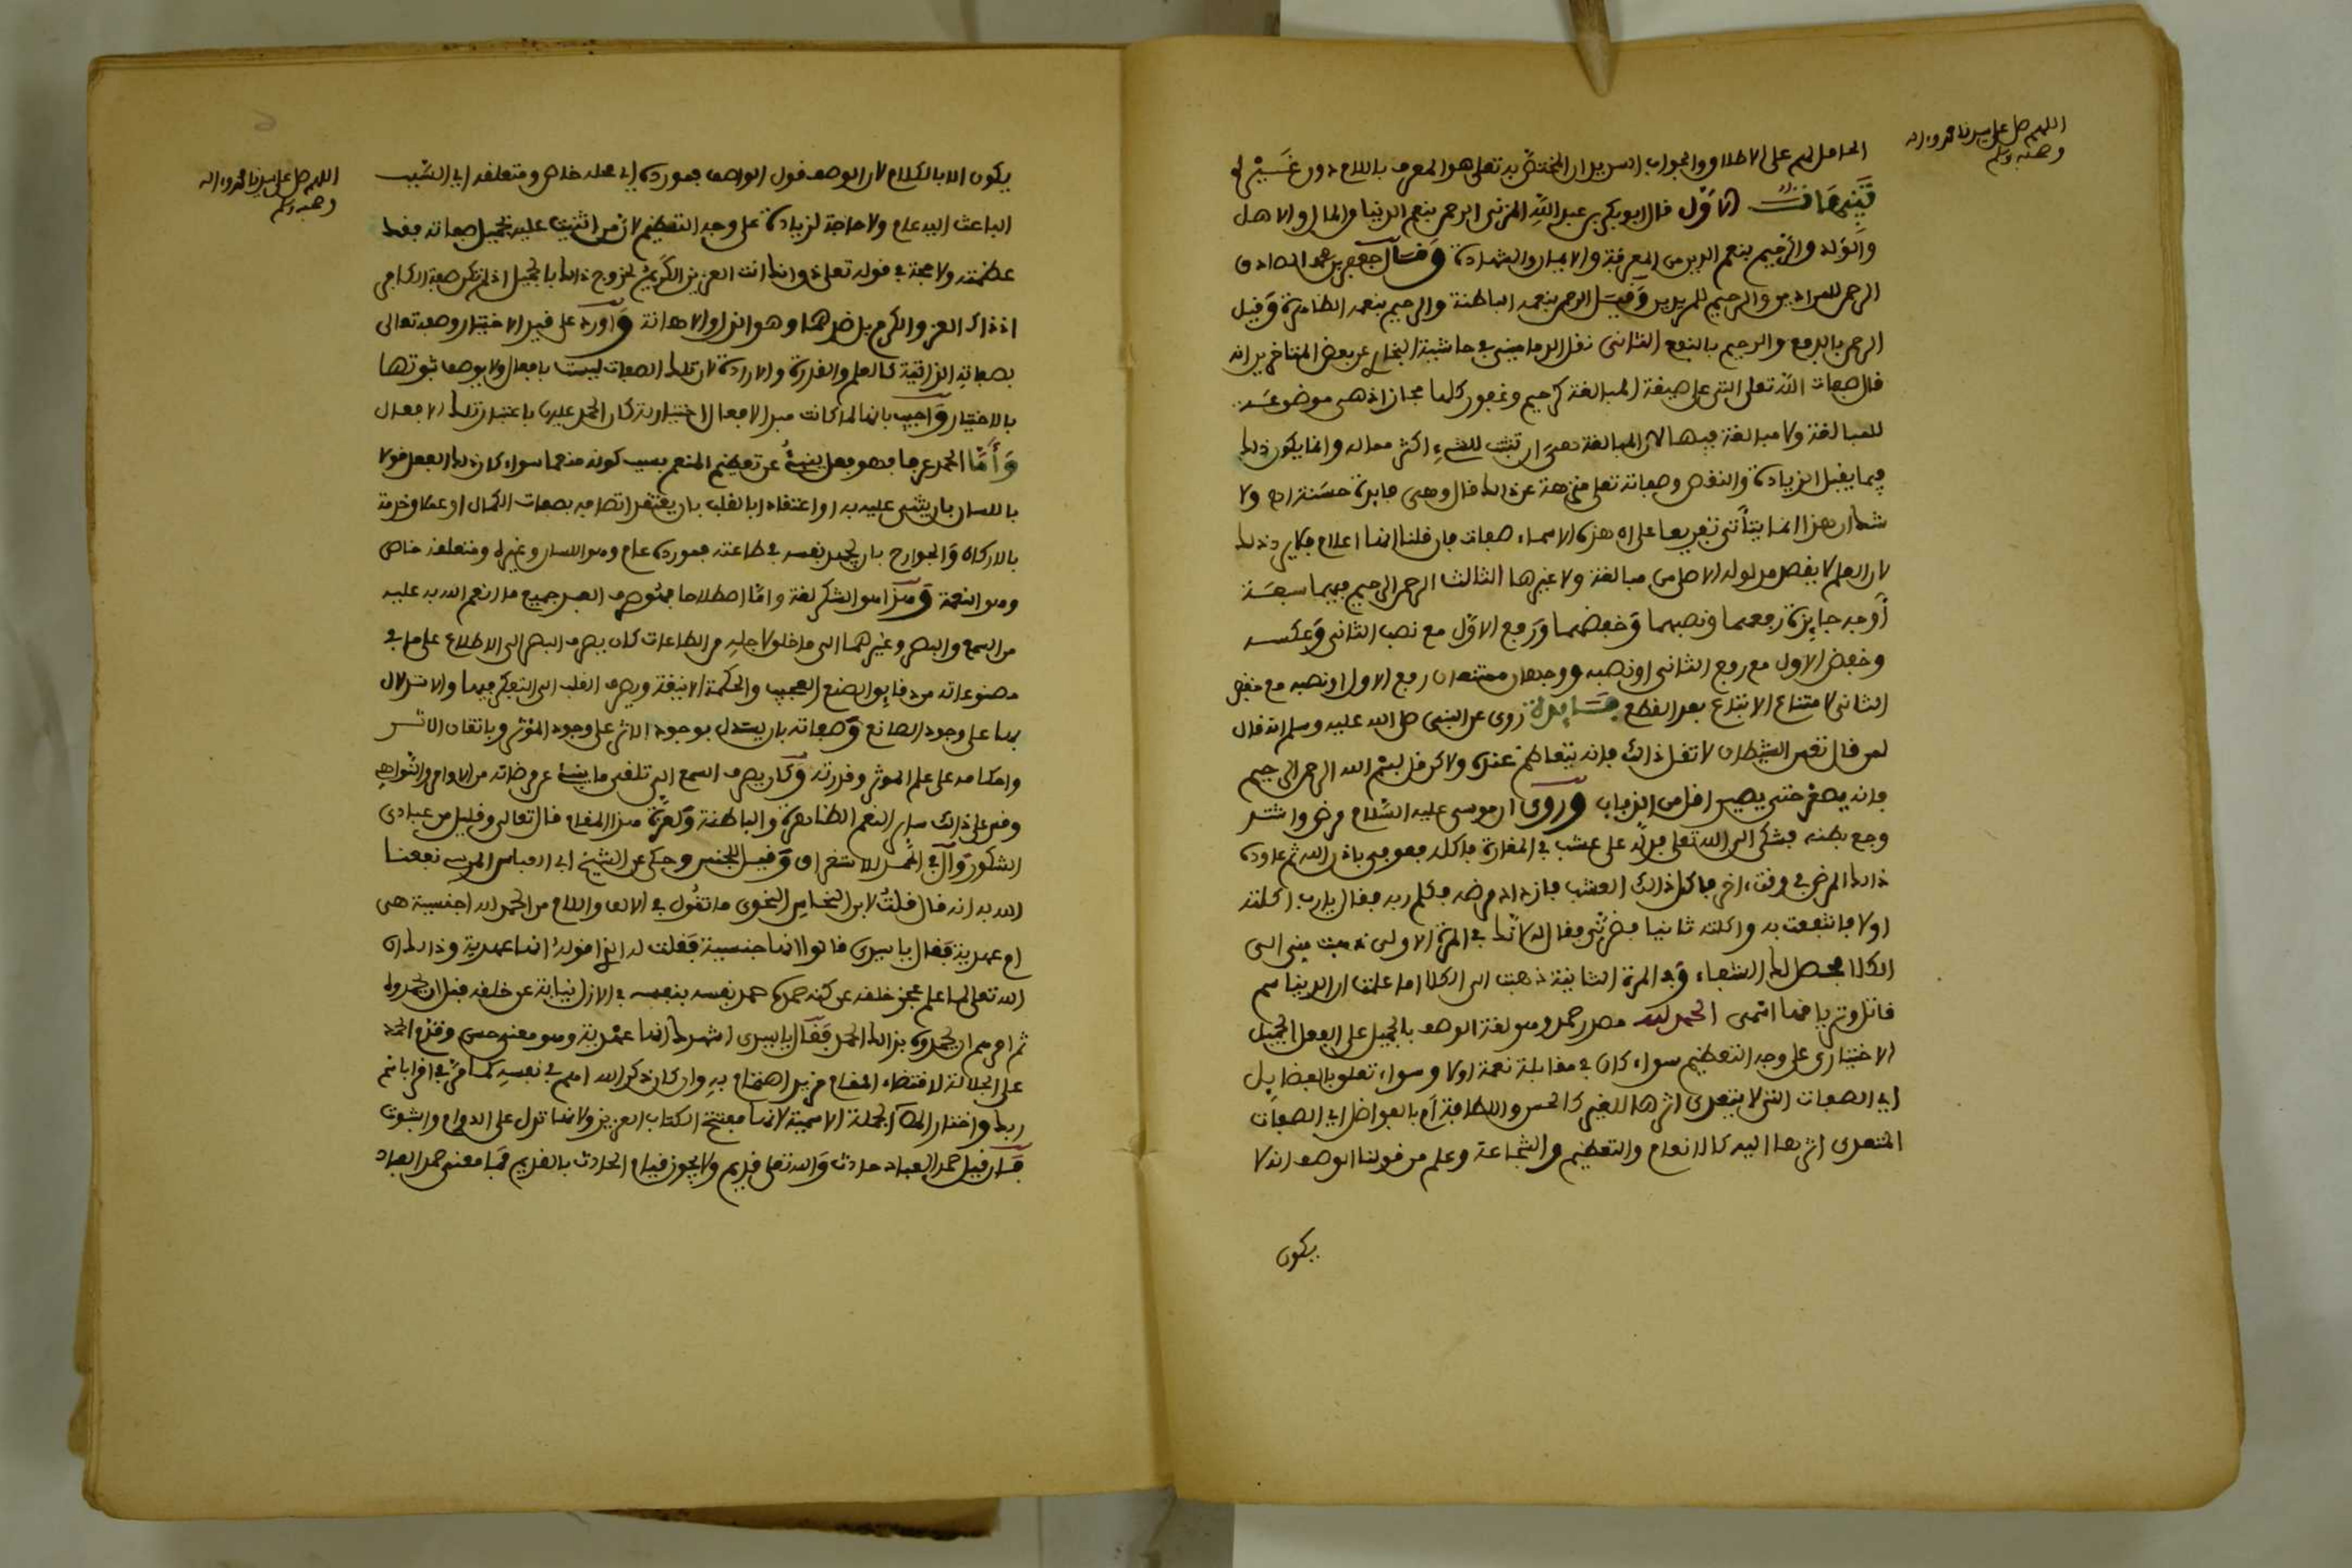 اللهم صل على سيدنا محمد وءاله
وصحبه وسلم
الحامل لهم على الاطلاق والجواب السديد ان المختص به تعلى هو المعرف باللام دون غيره
تنبيهات الاول قال ابو بكر بن عبد الله المزني الرحمن بنعم الدنيا والمال والاهل
والولد والرحيم بنعم الدين من المعرفة والايمان والشهادة وقال جعفر بن محمد الصادق
الرحمن للمرادين والرحيم للمريدين وقيل الرحمن بنعمه الباطنة والرحيم بنعمه الظاهرة وقيل
الرحمن بالدفع والرحيم بالنفع الثاني نقل الدماميني في حاشية البخاري عن بعض المتاخرين انه
قال صفات الله تعلى التي على صيغة المبالغة كرحيم وغفور كلها مجاز اذ هي موضوعة
للمبالغة ولا مبالغة فيها لان المبالغة هي ان تثبت للشيء اكثر مما له وانما يكون ذلك
فيما يقبل الزيادة والنقص وصفاته تعلى منزهة عن ذلك قال وهي فايدة حسنة اه ولا
شك ان هذا انما يتأتى تفريعا على ان هذه الاسماء صفات فان قلنا انها اعلام فلا يرد ذلك
لان العلم لا يقصد مدلوله الاصلي من مبالغة ولا غيرها الثالث الرحمن الرحيم فيهما سبعة
أوجه جايزة رفعهما ونصبهما وخفضهما ورفع الاول مع نصب الثاني وعكسه
وخفض الاول مع رفع الثاني او نصبه ووجهان ممتنعان رفع الاول او نصبه مع خفض
الثاني لامتناع الاتباع بعد القطع فايدة روي عن النبي صلى الله عليه وسلم انه قال
لمن قال تعس الشيطان لا تقل ذلك فانه يتعاظم عنده ولاكن قل بسم الله الرحمن الرحيم
فانه يصغر حتى يصير اقل من الذباب وروي ان موسى عليه السلام مرض واشتد
وجع بطنه فشكى الى الله تعلى فدله على عشب في المفازة فاكله فعوفي باذن الله ثم عاوده
ذلك المرض في وقت اخر فاكل ذلك العشب فازداد مرضه فكلم ربه فقال يارب اكلته
اولا فانتفعت به واكلته ثانيا فضرني فقال لانك في المرة الاولى ذهبت مني الى
الكلا فحصل لك الشفاء وفي المرة الثانية ذهبت الى الكلا اما علمت ان الدنيا سم
قاتل وترياقها اسمي الحمد لله مصدر حمد وهو لغة الوصف بالجميل على الفعل الجميل
الاختياري على وجه التعظيم سواء كان في مقابلة نعمة اولا وسواء تعلق بالفضايل
اي الصفات التي لا يتعدى اثرها للغير كالحسن واللطافة أم بالفواضل اي الصفات
المتعدي اثرها اليه كالانعام والتعظيم والشجاعة وعلم من قولنا الوصف انه لا
يكون
اللهم صل على سيدنا محمد وءاله
وصحبه وسلم
يكون الا بالكلام لان الوصف قول الواصف فمورده اي محله خاص ومتعلقه اي السبب
الباعث اليه عام ولا حاجة لزيادة على وجه التعظيم لان من اثنيت عليه بجميل صفاته فقد
عظمته ولا حجة في قوله تعلى ذق انك انت العزيز الكريم لخروج ذلك بالجميل اذ لم تكن صفة الكافر
اذ ذاك العز والكرم بل ضدهما وهو الذل والاهانة وأورد على قيد الاختيار وصفه تعالى
بصفاته الذاتية كالعلم والقدرة والارادة لان تلك الصفات ليست بافعال ولا يوصف ثبوتها
بالاختيار وأجيب بانها لما كانت مبدأ الافعال الاختيارية كان الحمد عليها باعتبار تلك الافعال
وأما الحمد عرفا فهو فعل ينبئ عن تعظيم المنعم بسبب كونه منعما سواء كان ذلك الفعل قولا
باللسان بان يثني عليه به او اعتقادا بالقلب بان يعتقد اتصافه بصفات الكمال او عملا وخدمة
بالاركان والجوارح بان يجهد نفسه في طاعته فمورده عام وهو اللسان وغيره ومتعلقه خاص
وهو النعمة وهذا هو الشكر لغة واما اصطلاحا فهو صرف العبد جميع ما انعم الله به عليه
من السمع والبصر وغيرهما الى ما خلق لاجله من الطاعات كان يصرف البصر الى الاطلاع على ما في
مصنوعاته من دقايق الصنع العجيب والحكمة الانيقة ويصرف القلب الى التفكر فيها والاستدلال
بها على وجود الصانع وصفاته بان يستدل بوجود الاثر على وجود المؤثر وباتقان الاثر
واحكامه على علم الموثر وقدرته وكان يصرف السمع الى تلقي ما ينبئ عن مرضاته من الاوامر والنواهي
وقس على ذلك ساير النعم الظاهرة والباطنة ولعزة هذا المقام قال تعالى وقليل من عبادي
الشكور وأل في الحمد للاستغراق وقيل للجنس وحكي عن الشيخ ابي العباس المرسي نفعنا
الله به انه قال قلت لابن النحاس النحوي ما تقول في الالف واللام من الحمد لله اجنسية هي
ام عهدية فقال يا سيدي قالوا انها جنسية فقلت له الذي اقوله انها عهدية وذلك ان
الله تعالى لما علم عجز خلقه عن كنه حمده حمد نفسه بنفسه في الازل نيابة عن خلقه قبل ان يحمدوه
ثم امرهم ان يحمدوه بذلك الحمد فقال يا سيدي اشهدك انها عهدية وهو معنى حسن وقدم الحمد
على الجلالة لاقتضاء المقام مزيد اهتمام به وان كان ذكر الله اهم في نفسه كما مر في اقرا باسم
ربك واختار المص الجملة الاسمية لانها مفتتح الكتاب العزيز ولانها تدل على الدوام والثبوت
فان قيل حمد العباد حادث والله تعلى قديم ولا يجوز قيام الحادث بالقديم فما معنى حمد العباد